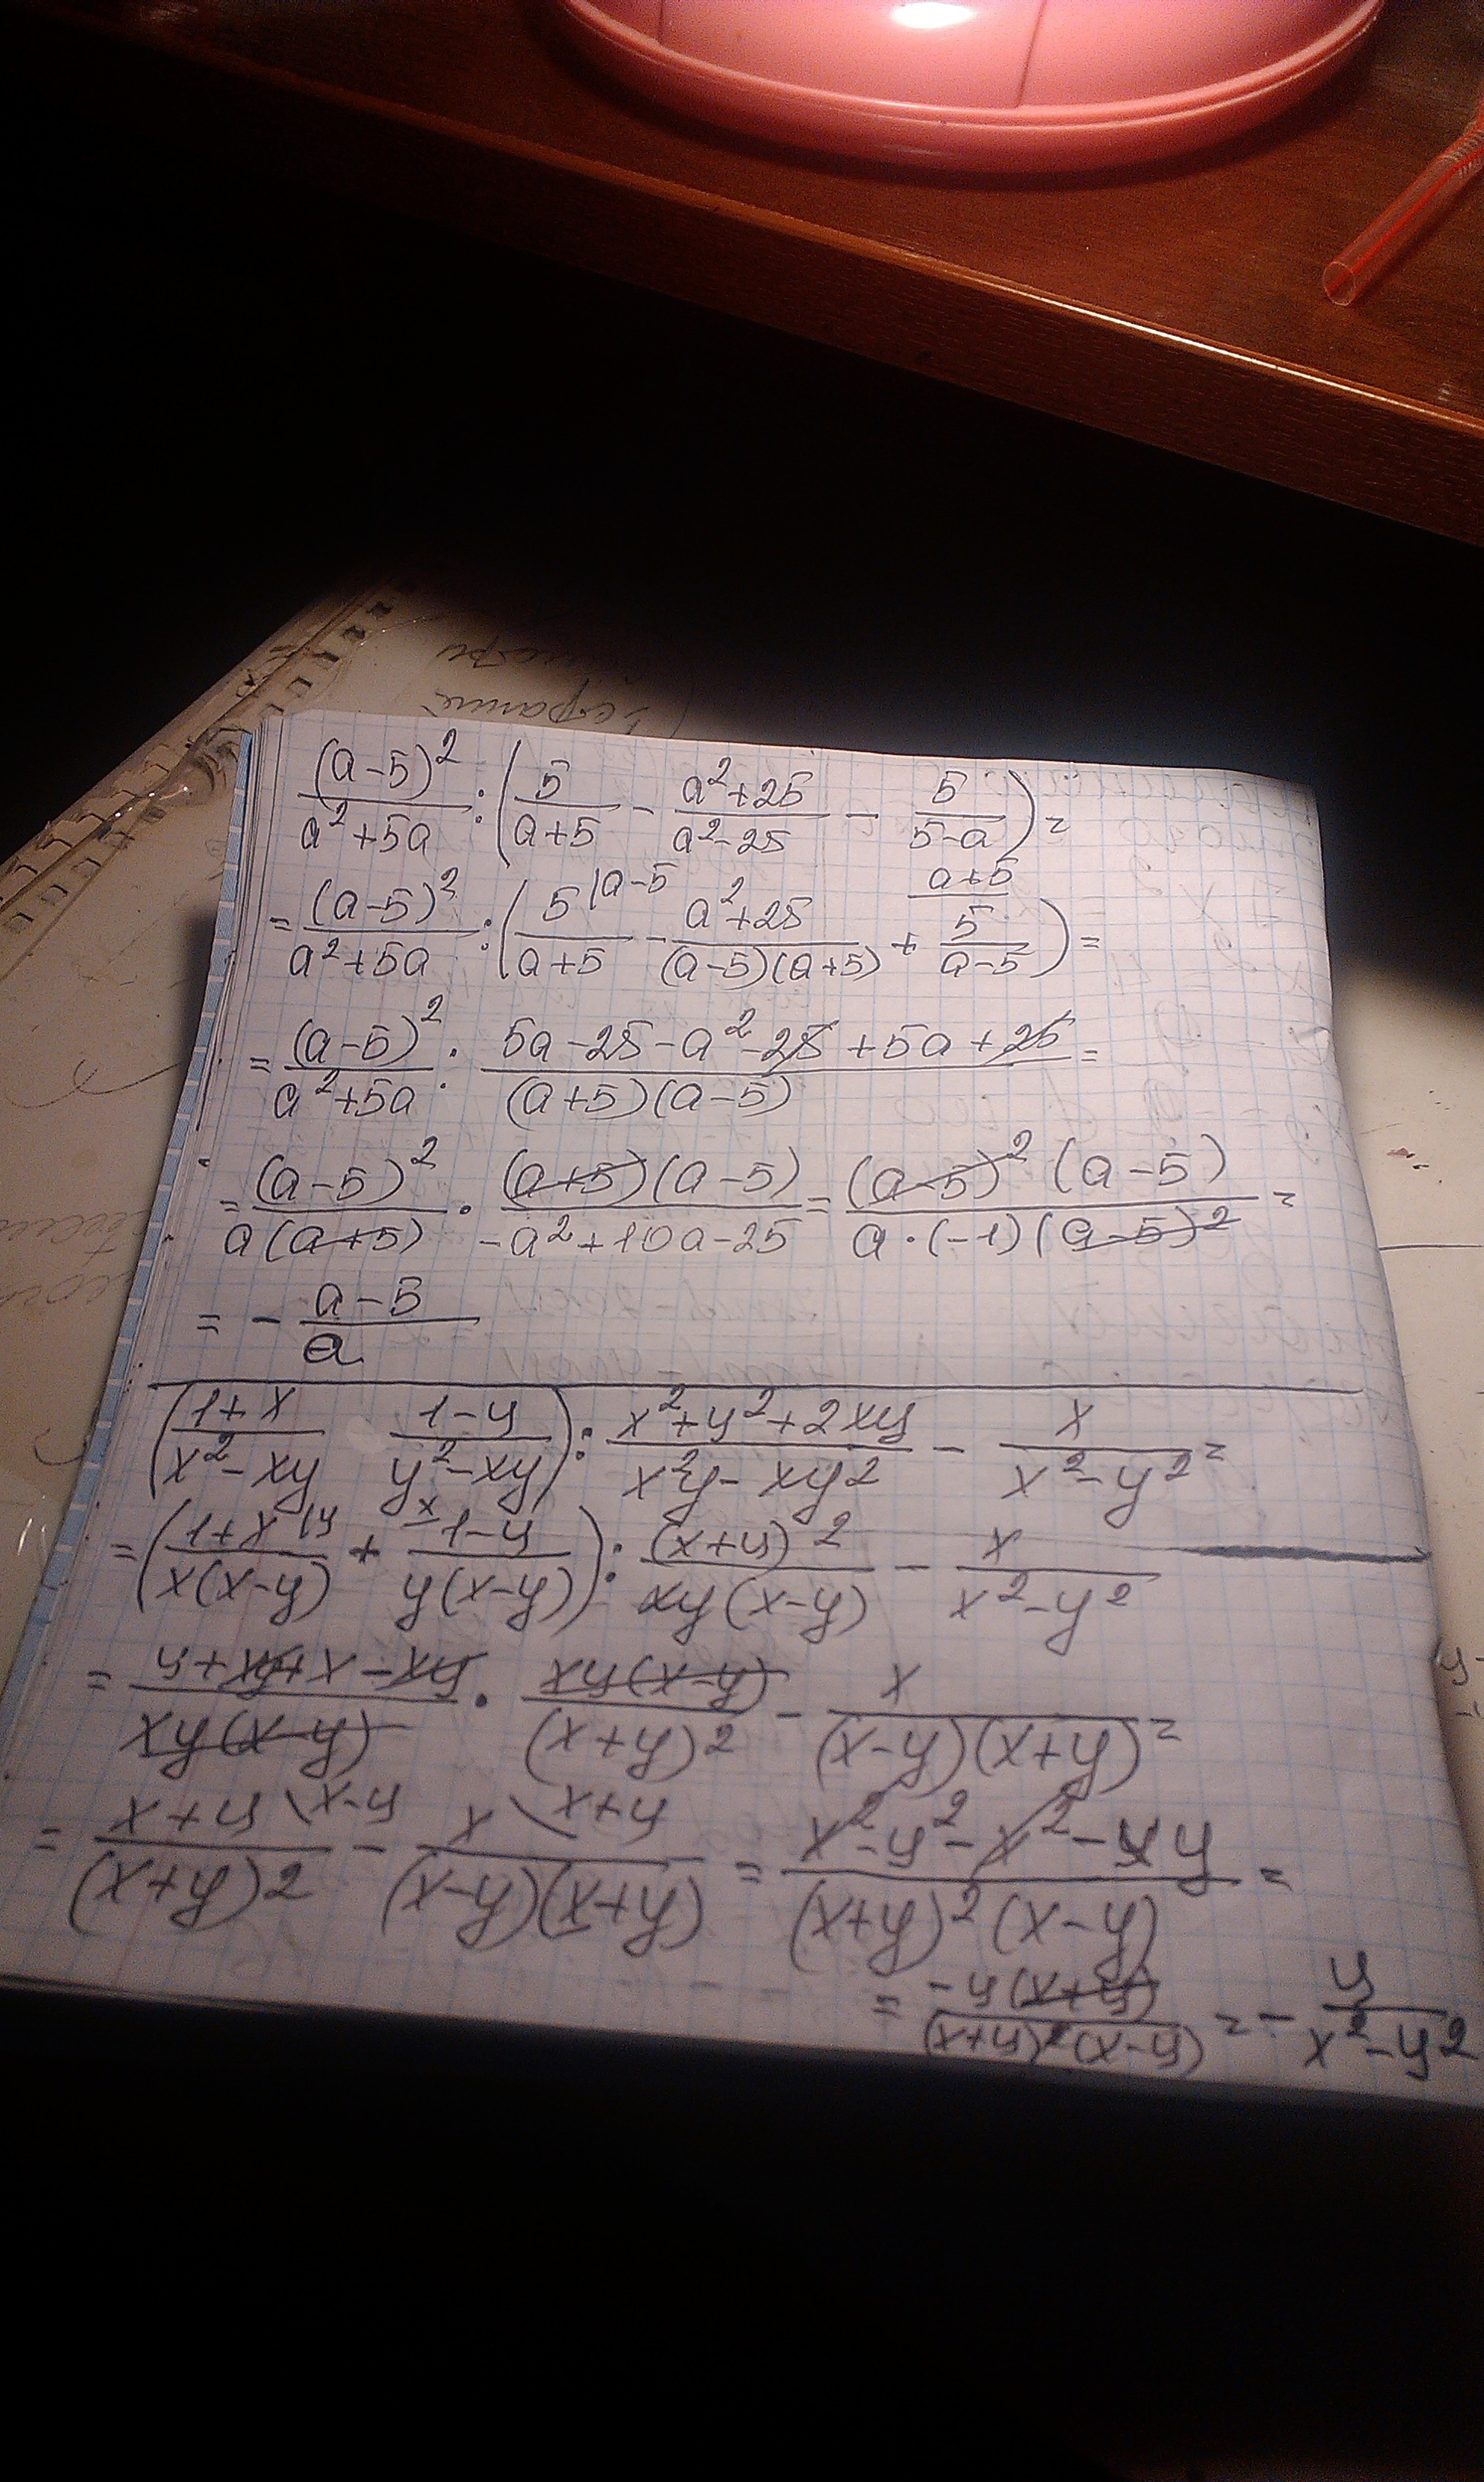 (a-5)²/(a²+5a) : (5/(a+5) - (a²+25)/(a²-25) - 5/(5-a)) =
= (a-5)²/(a²+5a) : (5/(a+5) |a-5 - (a²+25)/((a-5)(a+5)) + a+5| 5/(a-5)) =
= (a-5)²/(a²+5a) : (5a-25-a²-25+5a+25)/((a+5)(a-5)) =
= (a-5)²/(a(a+5)) · ((a+5)(a-5))/(-a²+10a-25) = ((a-5)²(a-5))/(a·(-1)(a-5)²) =
= - (a-5)/a
((1+x)/(x²-xy) (1-y)/(y²-xy)) : (x²+y²+2xy)/(x²y-xy²) - x/(x²-y²) =
= ((1+x)/(x(x-y)) |y + x| (1-y)/(y(x-y))) : (x+y)²/(xy(x-y)) - x/(x²-y²)
= (y+xy+x-xy)/(xy(x-y)) · (xy(x-y))/(x+y)² - x/((x-y)(x+y)) =
= (x+y)/(x+y)² \x-y - x/((x-y)(x+y)) \x+y = (x²-y²-x²-xy)/((x+y)²(x-y)) =
= (-y(x+y))/((x+y)²(x-y)) = - y/(x²-y²)